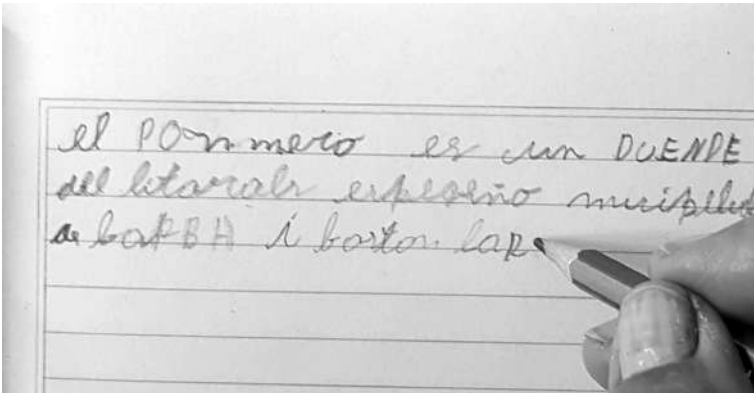 el POmmero es un DUENDE
del litarals espeseño
de baRBA i baston laR